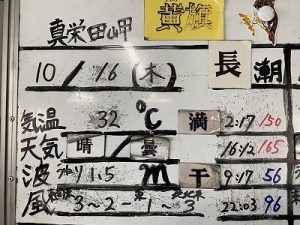 黄旗
真栄田岬
10/16(木) 長潮
気温 32℃ 満 2:17 150
天気 晴/曇 16:12 165
波 1.5m 干 9:17 56
風 3~2-1~3 22:03 96